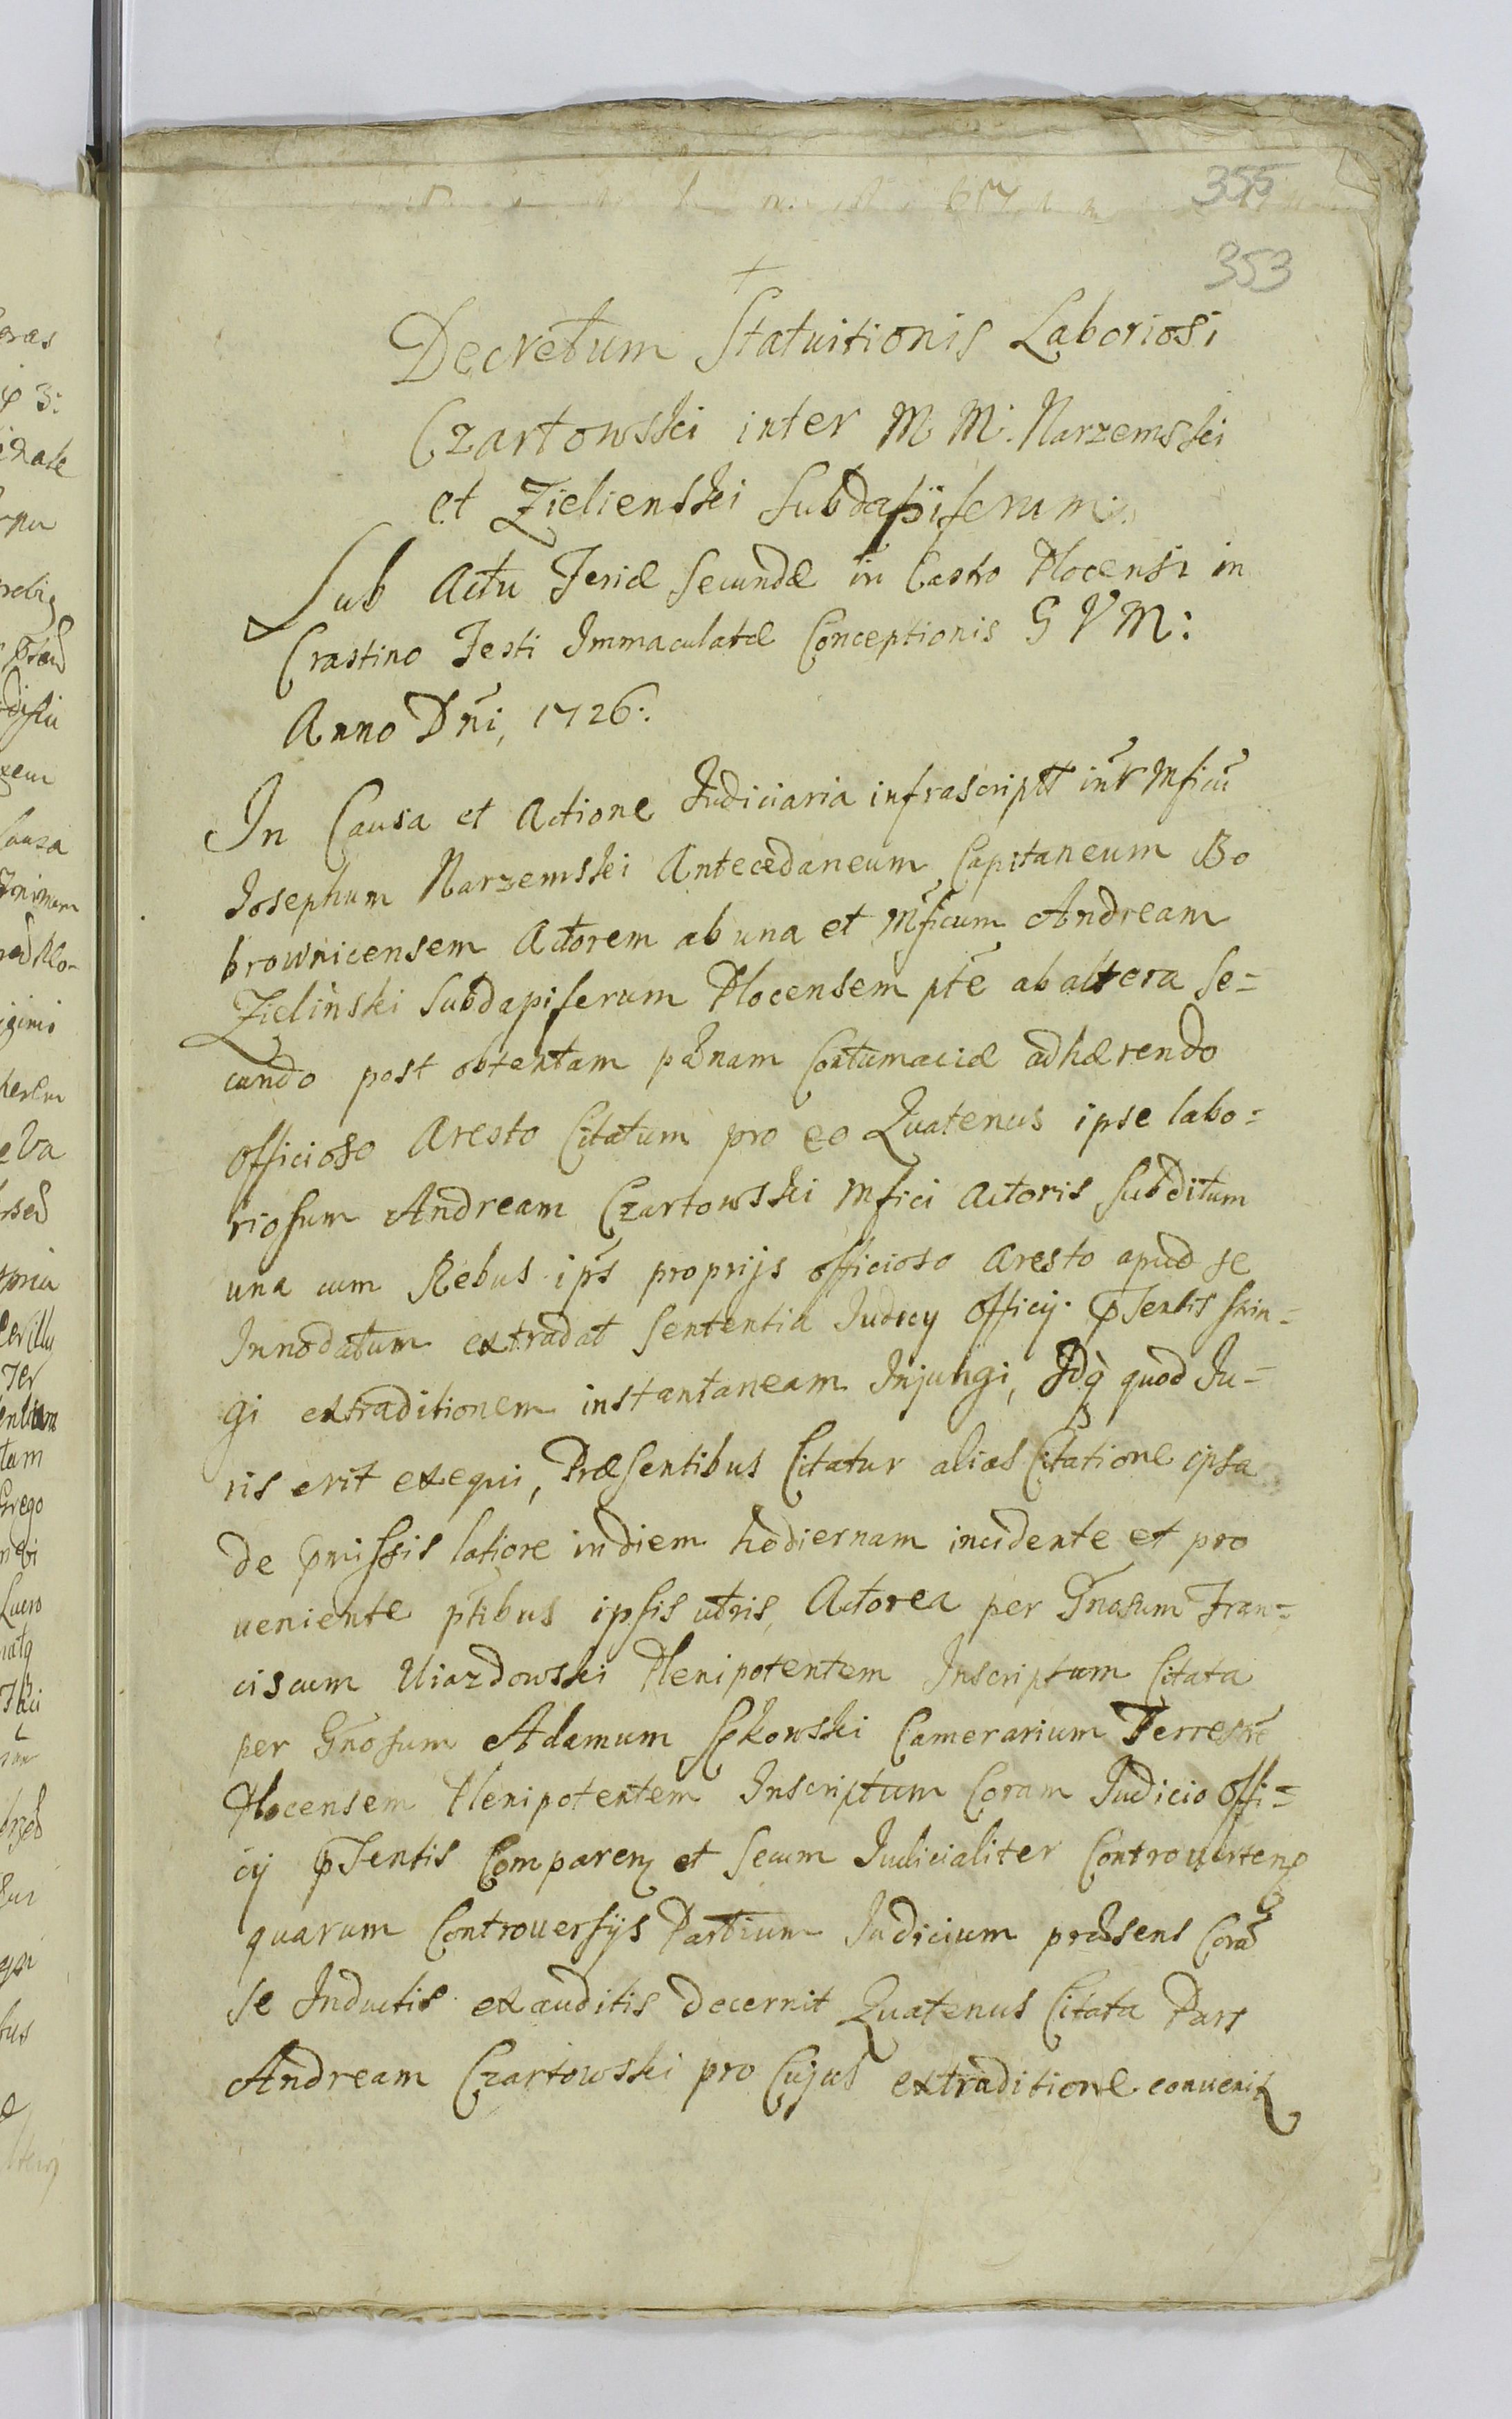 355
353
Decretum Statuitionis Laboriosi
Czartowski inter M M: Narzemski
et Zielienski Subdapiferum:
Sub Actu Feriæ Secundæ in Castro Plocensi in
Crastino Festi Immaculatæ Conceptionis G V M:
Anno Dñi, 1726:
In Causa et Actione Judiciaria infrascriptt inťr Mficũ
Josephum Narzemski Antecedaneum Capitaneum Bo
brownicensem Actorem ab una et Mficum Andream
Zielinski Subdapiferum Plocensem pte ab altera Se=
cundo post obtentam pænam Contumaciæ adhærendo
officioso Aresto Citatum pro eo Quatenus ipse labo=
riosum Andream Czartowski Mfici Actoris Subditum
una cum Rebus ips proprijs officioso Aresto apud se
Innodatum extradat Sententia Judicy Officij
gi extraditionem instantaneam Injungi, Idq quod Ju=
ris erit exequi, Præsentibus Citatur alias Citatione ipsa
de pmissis latiore in diem hodiernam incidente et pro
ueniente ptibus ipsis utris, Actorea per Gnosum Fran=
ciscum Uiazdowski Plenipotentem Inscriptum Citata
per Gnosum Adamum Camerarium Terrestre
Plocensem Plenipotentem Inscriptum Coram Judicio Offi=
cij pSentis Comparen et Secum Judicialiter Controverten
quarum Controuersijs Partium Judicium præsens Corã
se Inductis exauditis decernit Quatenus Citata Pars
Andream Czartowski pro Cujus extraditione conuenit